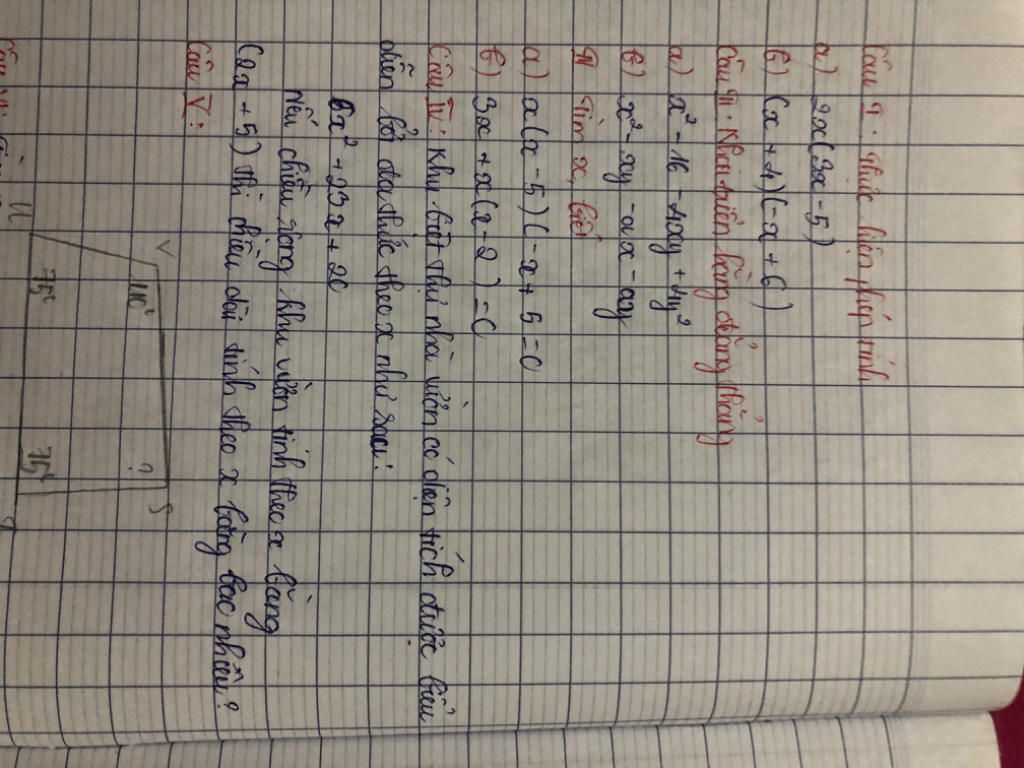 Câu I. Thực hiện phép tính
a) 2x(3x - 5)
b) (x + 4)(-x + 6)
Câu II. Khai triển hằng đẳng thẳng
a) x² - 16 - 4xy + 4y²
b) x² - xy - ax - ay
III Tìm x, biết
a) x(x - 5)(-x + 5 = 0
b) 3x + x(x - 2) = 0
Câu IV: Khu biệt thự nhà vườn có diện tích được biểu
diễn bởi đa thức theo x như sau:
6x² + 23x + 20
Nếu chiều rộng khu vườn tính theo x bằng
(2x + 5) thì chiều dài tính theo x bằng bao nhiêu?
Câu V:
V 110° ? S
U 75° 75°